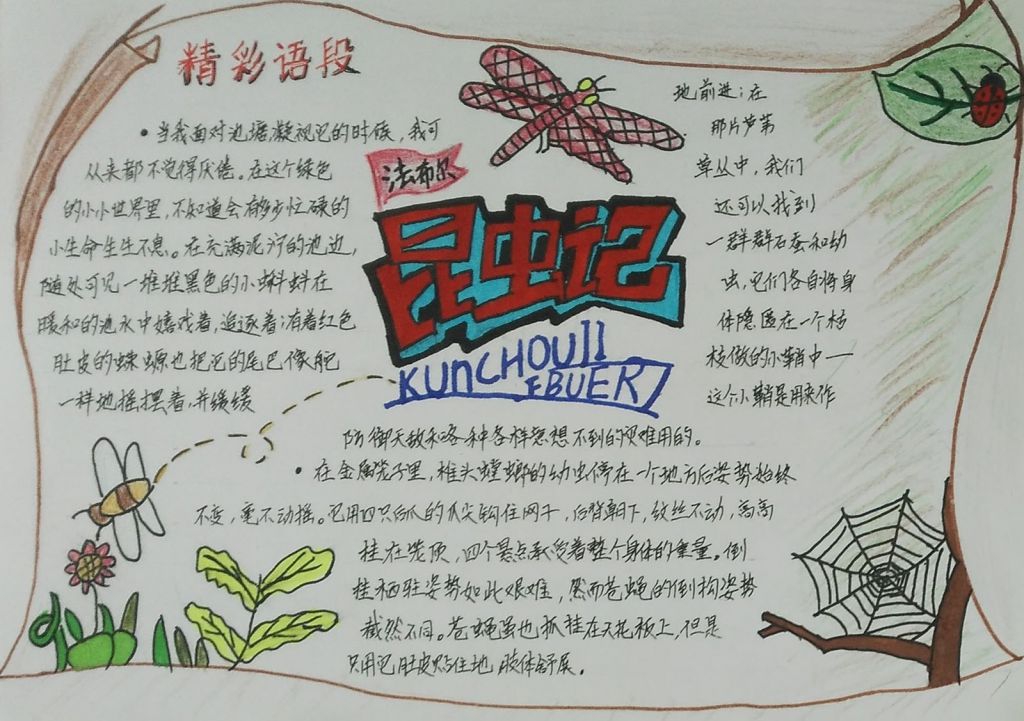 精彩语段
• 当我面对池塘,凝视它的时候,我可
从来都不觉得厌倦。在这个绿色
的小小世界里,不知道会有多少忙碌的
小生命生生不息。在充满泥泞的池边,
随处可见一堆堆黑色的小蝌蚪在
暖和的池水中嬉戏着,追逐着;有着红色
肚皮的蝾螈也把它的尾巴像舵
一样地摇摆着,并缓缓
地前进;在
那片芦苇
草丛中,我们
还可以找到
一群群石蚕和幼
虫,它们各自将身
体隐匿在一个枯
枝做的小鞘中——
这个小鞘是用来作
防御天敌和各种各样意想不到的灾难用的。
法布尔
昆虫记
KUnCHOUJI
FBUER
• 在金属笼子里,椎头螳螂的幼虫停在一个地方后姿势始终
不变,毫不动摇。它用四只后爪的爪尖钩住网干,后背朝下,纹丝不动,高高
挂在笼顶,四个悬点承受着整个身体的重量。倒
挂栖驻姿势如此艰难,然而苍蝇的倒构姿势
截然不同。苍蝇虽也抓挂在天花板上,但是
只用它肚皮贴住地 肢体舒展。